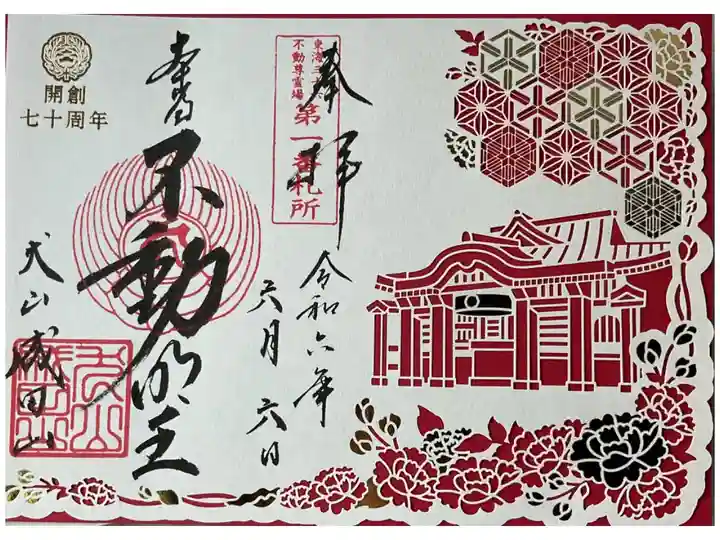 奉拝
令和六年
六月六日
東海三十六
不動尊霊場
第一番札所
本尊
不動明王
犬山
成田山
開創
七十周年